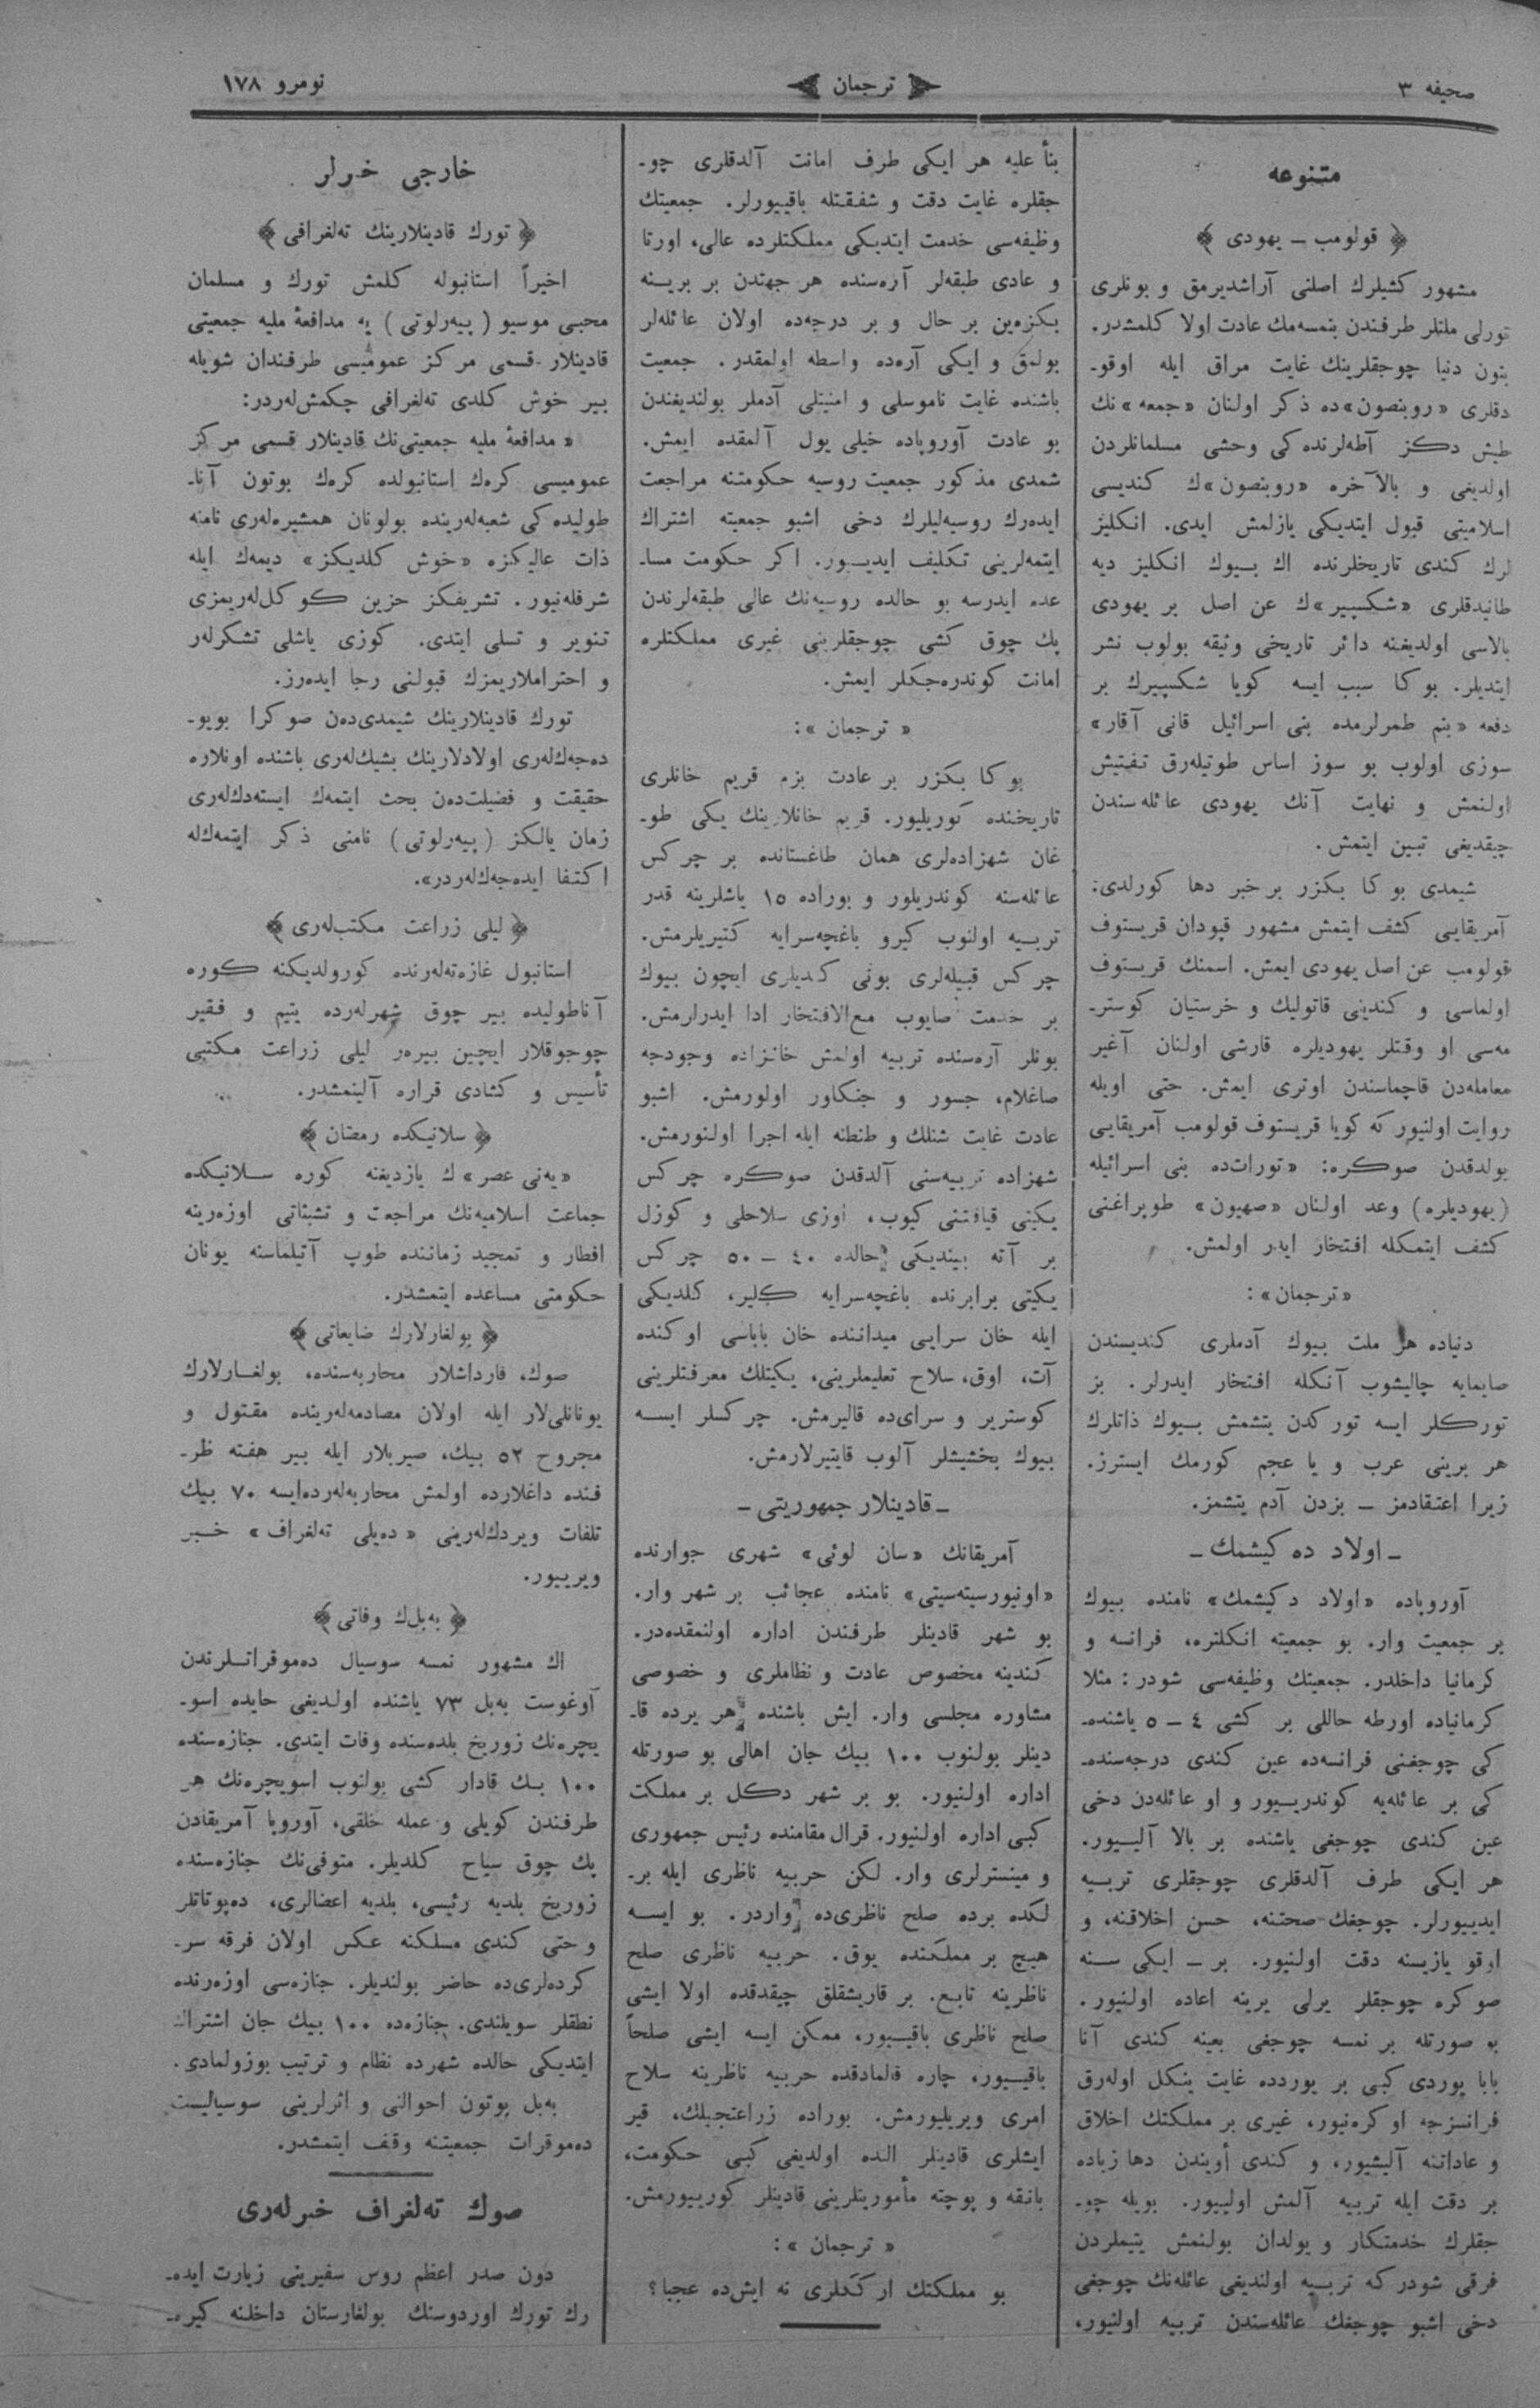 صحيفه ٣
ترجمان
نومرو ١٧٨
متنوعه
﴿ قولومب ــ يهودى ﴾
مشهور كشيلرك اصلنى آراشديرمق و بونلرى
تورلى ملتلر طرفندن بنمسه‌مك عادت اولا كلمشدر.
بتون دنيا چوجقلرينك غايت مراق ايله اوقو-
دقلرى «روبنصون»ده ذكر اولنان «جمعه»نك
طيش دكز آطه‌لرنده‌كى وحشى مسلمانلردن
اولديغى و بالآخره «روبنصون»ك كنديسى
اسلاميتى قبول ايتديكى يازلمش ايدى. انكليز
لرك كندى تاريخلرنده اك بيوك انكليز ديه
طانيدقلرى «شكسپير»ك عن اصل بر يهودى
بالاسى اولديغنه دائر تاريخى وثيقه بولوب نشر
ايتديلر. بوكا سبب ايسه كويا شكسپيرك بر
دفعه «بنم طمرلرمده بنى اسرائيل قانى آقار»
سوزى اولوب بو سوز اساس طوتيله‌رق تفتيش
اولنمش و نهايت آنك يهودى عائله‌سندن
چيقديغى تبين ايتمش.
شيمدى بوكا بكزر بر خبر دها كورلدى:
آمريقايى كشف ايتمش مشهور قپودان قريستوف
قولومب عن اصل يهودى ايمش. اسمنك قريستوف
اولماسى و كندينى قاتوليك و خرستيان كوستر-
مه‌سى او وقتلر يهوديلره قارشى اولنان آغير
معامله‌دن قاچماسندن اوترى ايمش. حتى اويله
روايت اولنيور كه كويا قريستوف قولومب آمريقايى
بولدقدن صوكره: «تورات‌ده بنى اسرائيله
(يهوديلره) وعد اولنان «صهيون» طوپراغنى
كشف ايتمكله افتخار ايدر اولمش.
«ترجمان»:
دنياده هر ملت بيوك آدملرى كنديسندن
صايمايه چاليشوب آنكله افتخار ايدرلر. بز
توركلر ايسه توركدن يتشمش بيوك ذاتلرك
هر برينى عرب و يا عجم كورمك ايسترز.
زيرا اعتقادمز ــ بزدن آدم يتشمز.
ــ اولاد ده كيشمك ــ
آوروپاده «اولاد دكيشمك» نامنده بيوك
بر جمعيت وار. بو جمعيته انكلتره، فرانسه و
كرمانيا داخلدر. جمعيتك وظيفه‌سى شودر: مثلا
كرمانياده اورطه حاللى بر كشى ٤ ــ ٥ ياشنده-
كى چوجغنى فرانسه‌ده عين كندى درجه‌سنده-
كى بر عائله‌يه كوندريور و او عائله‌دن دخى
عين كندى چوجغى ياشنده بر بالا آليور.
هر ايكى طرف آلدقلرى چوجقلرى تربيه
ايدييورلر. چوجغك صحتنه، حسن اخلاقنه، و
اوقو يازيسنه دقت اولنيور. بر ــ ايكى سنه
صوكره چوجقلر يرلى يرينه اعاده اولنيور.
بو صورتله بر نمسه چوجغى بعينه كندى آنا
بابا يوردى كبى بر يوردده غايت ينكل اوله‌رق
فرانسزجه اوكره‌نيور، غيرى بر مملكتك اخلاق
و عاداتنه آليشيور، و كندى أويندن دها زياده
بر دقت ايله تربيه آلمش اولييور. بويله چو-
جقلرك خدمتكار و يولدان بولنمش يتيملردن
فرقى شودر كه تربيه اولنديغى عائله‌نك چوجغى
دخى اشبو چوجغك عائله‌سندن تربيه اولنيور،
بنأ عليه هر ايكى طرف امانت آلدقلرى چو-
جقلره غايت دقت و شفقتله باقييورلر. جمعيتك
وظيفه‌سى خدمت ايتديكى مملكتلرده عالى، اورتا
و عادى طبقه‌لر آره‌سنده هر جهتدن بر برينه
بكزه‌ين بر حال و بر درجه‌ده اولان عائله‌لر
بولمق و ايكى آره‌ده واسطه اولمقدر. جمعيت
باشنده غايت ناموسلى و امنيتلى آدملر بولنديغندن
بو عادت آوروپاده خيلى يول آلمقده ايمش.
شمدى مذكور جمعيت روسيه حكومتنه مراجعت
ايده‌رك روسيه‌ليلرك دخى اشبو جمعيته اشتراك
ايتمه‌لرينى تكليف ايدييور. اكر حكومت مسا-
عده ايدرسه بو حالده روسيه‌نك عالى طبقه‌لرندن
پك چوق كشى چوجقلرينى غيرى مملكتلره
امانت كوندره‌جكلر ايمش.
« ترجمان »:
بوكا بكزر بر عادت بزم قريم خانلرى
تاريخنده كوريليور. قريم خانلارينك يكى طو-
غان شهزاده‌لرى همان طاغستانده بر چركس
عائله‌سنه كوندريلور و بوراده ١٥ ياشلرينه قدر
تربيه اولنوب كيرو باغچه‌سرايه كتيريلرمش.
چركس قبيله‌لرى بونى كنديلرى ايچون بيوك
بر خدمت صايوب مع‌الافتخار ادا ايدرلرمش.
بونلر آره‌سنده تربيه اولمش خانزاده وجودجه
صاغلام، جسور و جنكاور اولورمش. اشبو
عادت غايت شنلك و طنطنه ايله اجرا اولنورمش.
شهزاده تربيه‌سنى آلدقدن صوكره چركس
يكينى قيافتنى كيوب، اوزى سلاحلى و كوزل
بر آته بينديكى حالده ٤٠ ــ ٥٠ چركس
يكيتى برابرنده باغچه‌سرايه كلير، كلديكى
ايله خان سرايى ميداننده خان باباسى اوكنده
آت، اوق، سلاح تعليملرينى، يكيتلك معرفتلرينى
كوسترير و سراى‌ده قاليرمش. چركسلر ايسه
بيوك بخشيشلر آلوب قايتيرلارمش.
ــ قادينلار جمهوريتى ــ
آمريقانك «سان لوئى» شهرى جوارنده
«اونيورسيته‌سيتى» نامنده عجائب بر شهر وار.
بو شهر قادينلر طرفندن اداره اولنمقده‌در.
كندينه مخصوص عادت و نظاملرى و خصوصى
مشاوره مجلسى وار. ايش باشنده هر يرده قا-
دينلر بولنوب ١٠٠ بيك جان اهالى بو صورتله
اداره اولنيور. بو بر شهر دكل بر مملكت
كبى اداره اولنيور. قرال مقامنده رئيس جمهورى
و مينسترلرى وار. لكن حربيه ناظرى ايله بر-
لكده برده صلح ناظرى‌ده واردر. بو ايسه
هيچ بر مملكتده يوق. حربيه ناظرى صلح
ناظرينه تابع. بر قاريشقلق چيقدقده اولا ايشى
صلح ناظرى باقييور، ممكن ايسه ايشى صلحاً
باقييور، چاره قالمادقده حربيه ناظرينه سلاح
امرى ويريليورمش. بوراده زراعتجيلك، قير
ايشلرى قادينلر الده اولديغى كبى حكومت،
بانقه و پوچته مأمورينلرينى قادينلر كورييورمش.
« ترجمان »:
بو مملكتك اركَكلرى نه ايش‌ده عجبا؟
خارجى خبرلر
﴿ تورك قادينلارينك ته‌لغرافى ﴾
اخيراً استانبوله كلمش تورك و مسلمان
محبى موسيو (پيه‌رلوتى) يه مدافعۀ مليه جمعيتى
قادينلار قسمى مركز عموميسى طرفندان شويله
بير خوش كلدى ته‌لغرافى چكمش‌له‌ردر:
« مدافعۀ مليه جمعيتى‌نك قادينلار قسمى مركز
عموميسى كره‌ك استانبولده كره‌ك بوتون آنا-
طوليده‌كى شعبه‌له‌رينده بولونان همشيره‌له‌رى نامنه
ذات عاليكزه «خوش كلديكز» ديمه‌ك ايله
شرفله‌نيور. تشريفكز حزين كوكل‌له‌ريمزى
تنوير و تسلى ايتدى. كوزى ياشلى تشكرله‌ر
و احتراملاريمزك قبولنى رجا ايده‌رز.
تورك قادينلارينك شيمدى‌ده‌ن صوكرا بويو-
ده‌جه‌ك‌له‌رى اولادلارينك بشيك‌له‌رى باشنده اونلاره
حقيقت و فضيلت‌ده‌ن بحث ايتمه‌ك ايسته‌دك‌له‌رى
زمان يالكز (پيه‌رلوتى) نامنى ذكر ايتمه‌ك‌له
اكتفا ايده‌جه‌ك‌له‌ردر».
﴿ ليلى زراعت مكتب‌له‌رى ﴾
استانبول غازه‌ته‌له‌رنده كورولديكنه كوره
آناطوليده بير چوق شهرله‌رده يتيم و فقير
چوجوقلار ايچين بيره‌ر ليلى زراعت مكتبى
تأسيس و كشادى قراره آلينمشدر.
﴿ سلانيكده رمضان ﴾
«يه‌نى عصر»ك يازديغنه كوره سلانيكده
جماعت اسلاميه‌نك مراجعت و تشبثاتى اوزه‌رينه
افطار و تمجيد زماننده طوپ آتيلماسنه يونان
حكومتى مساعده ايتمشدر.
﴿ بولغارلارك ضايعاتى ﴾
صوك، قارداشلار محاربه‌سنده، بولغارلارك
يونانلى‌لار ايله اولان مصادمه‌له‌رينده مقتول و
مجروح ٥٢ بيك، صيربلار ايله بير هفته ظر-
فنده داغلارده اولمش محاربه‌له‌رده‌ايسه ٧٠ بيك
تلفات ويردك‌له‌رينى «ده‌يلى ته‌لغراف» خبر
ويرييور.
﴿ به‌بل‌ك وفاتى ﴾
اك مشهور نمسه سوسيال ده‌موقراتلرندن
آوغوست به‌بل ٧٣ ياشنده اولديغى حايده اسو-
يچره‌نك زوريخ بلده‌سنده وفات ايتدى. جنازه‌سنده
١٠٠ بيك قادار كشى بولنوب اسويچره‌نك هر
طرفندن كويلى و عمله خلقى، آوروپا آمريقادن
پك چوق سياح كلديلر. متوفى‌نك جنازه‌سنده
زوريخ بلديه رئيسى، بلديه اعضالرى، ده‌پوتاتلر
و حتى كندى مسلكنه عكس اولان فرقه سر-
كرده‌لرى‌ده حاضر بولنديلر. جنازه‌سى اوزه‌رنده
نطقلر سويلندى. جنازه‌ده ١٠٠ بيك جان اشتراك
ايتديكى حالده شهرده نظام و ترتيب بوزولمادى.
به‌بل بوتون احوالنى و اثرلرينى سوسياليست
ده‌موقرات جمعيتنه وقف ايتمشدر.
صوك ته‌لغراف خبرله‌رى
دون صدر اعظم روس سفيرينى زيارت ايده-
رك تورك اوردوسنك بولغارستان داخلنه كيره-